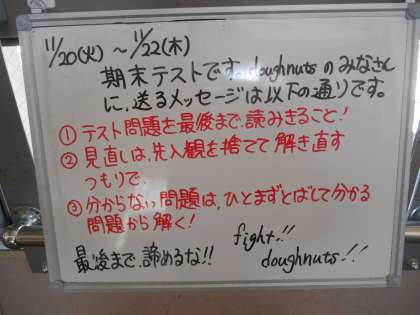 11/20(火)～11/22(木)
期末テストです。doughnutsのみなさん
に、送るメッセージは以下の通りです。
①テスト問題を最後まで、読みきること!
②見直しは、先入観を捨てて解き直す
つもりで、
③分からない問題は、ひとまずとばして分かる
問題から解く!
最後まで、諦めるな!! fight!!
doughnuts!!